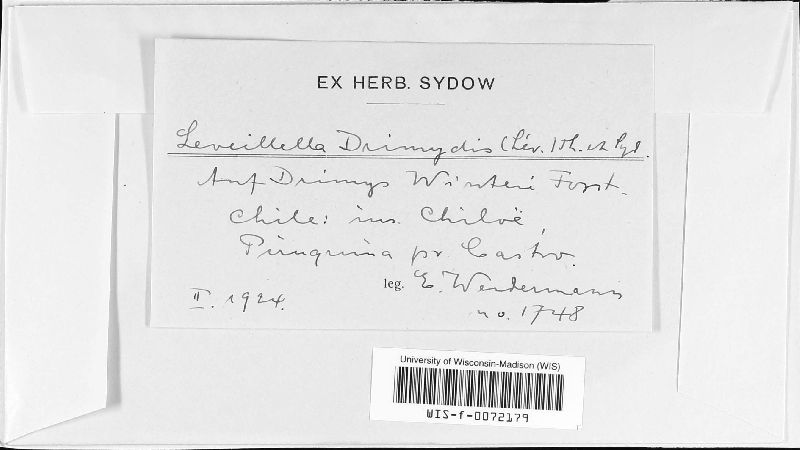 EX HERB. SYDOW
Leveillella Drimydis (Lév.) Th. et Syd.
Auf Drimys Winteri Forst.
Chile: ins. Chiloë,
Piruquina pr. Castro.
leg. E. Werdermann
II. 1924.
no. 1748
University of Wisconsin-Madison (WIS)
WIS-f-0072179